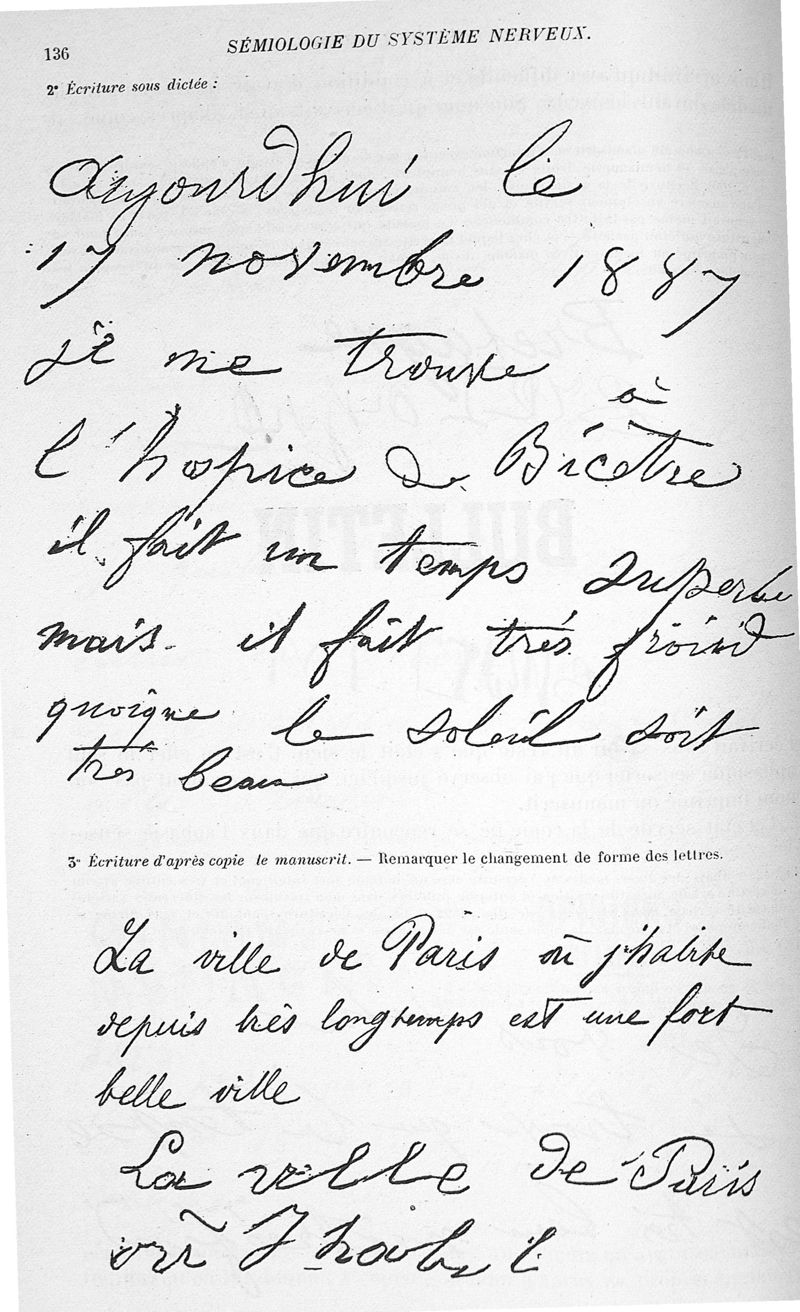 136
SÉMIOLOGIE DU SYSTÈME NERVEUX.
2° Écriture sous dictée :
aujourdhui le
17 novembre 1887
je me trouve
à
l'hospice de Bicêtre
il fait un temps superbe
mais il fait trés froid
quoique le soleil soit
trés beau
3° Écriture d'après copie le manuscrit. — Remarquer le changement de forme des lettres.
La ville de Paris où j'habite
depuis très longtemps est une fort
belle ville
La ville de Paris